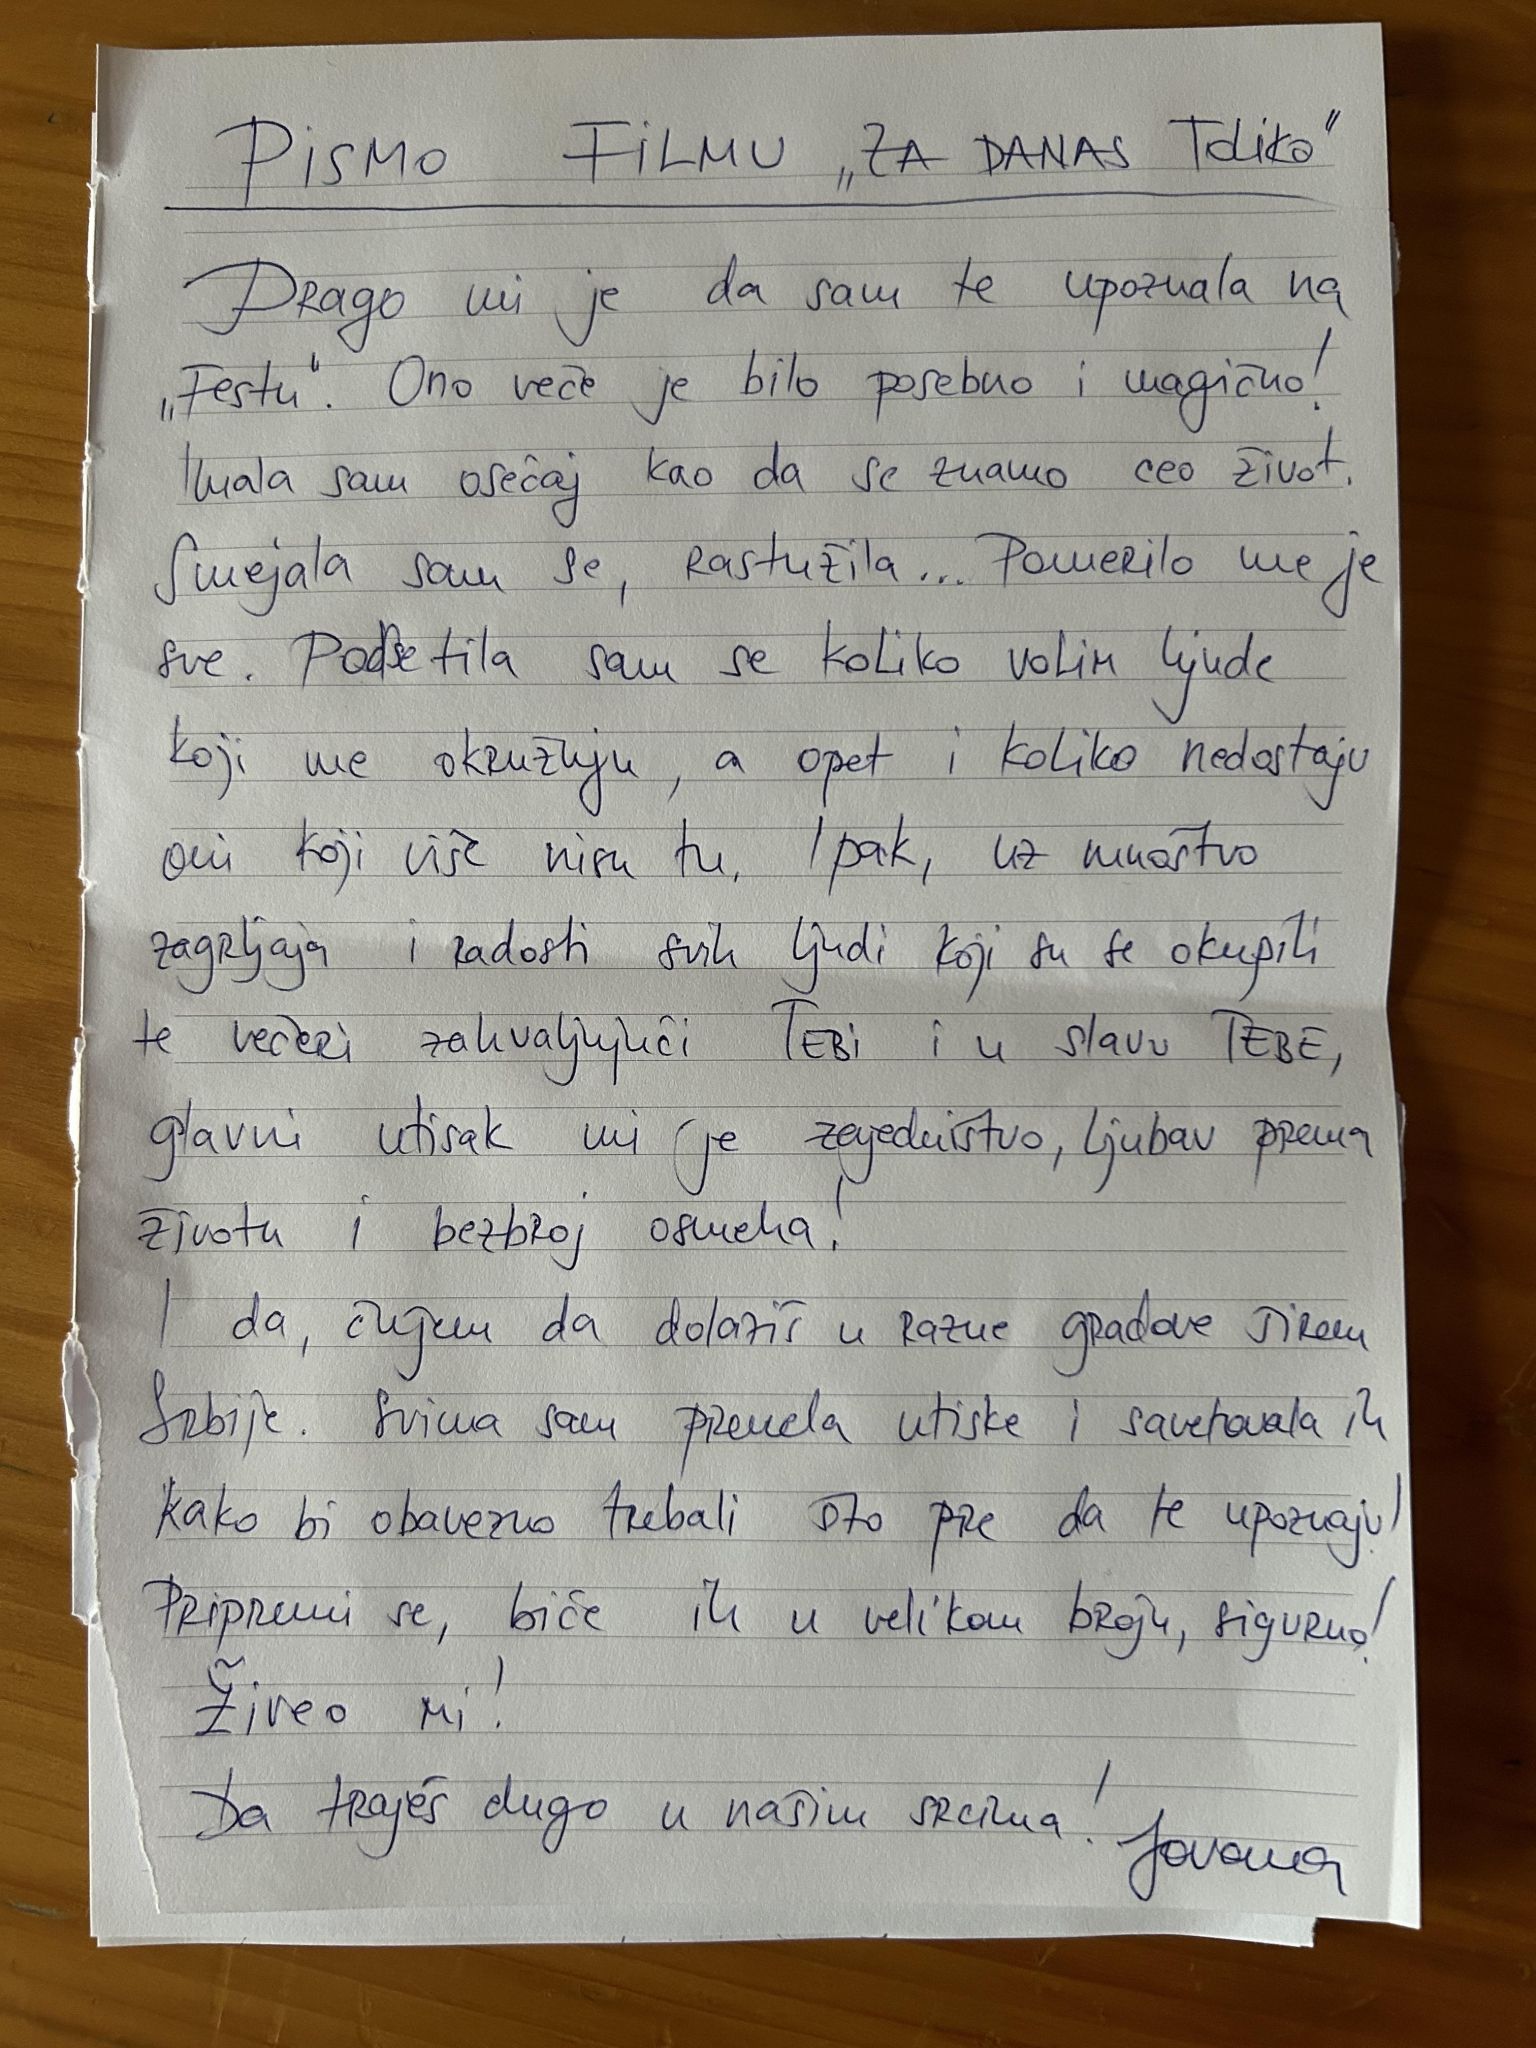 PISMO FILMU „ZA DANAS Toliko"
DRAGO mi je da sam te upoznala na
„Festu". Ono veče je bilo posebno i magično!
Imala sam osećaj kao da se znamo ceo život.
Smejala sam se, rastužila... Pomerilo me je
sve. Podsetila sam se koliko volim ljude
koji me okružuju, a opet i koliko nedostaju
oni koji više nisu tu. Ipak, uz mnoštvo
zagrljaja i radosti svih ljudi koji su se okupili
te večeri zahvaljujući TEBI i u slavu TEBE,
glavni utisak mi je zajedništvo, ljubav prema
životu i bezbroj osmeha!
I da, čujem da dolaziš u razne gradove širom
Srbije. Svima sam prenela utiske i savetovala ih
kako bi obavezno trebali što pre da te upoznaju!
Pripremi se, biće ih u velikom broju, sigurno!
Živeo mi!
Da traješ dugo u našim srcima! Jovana